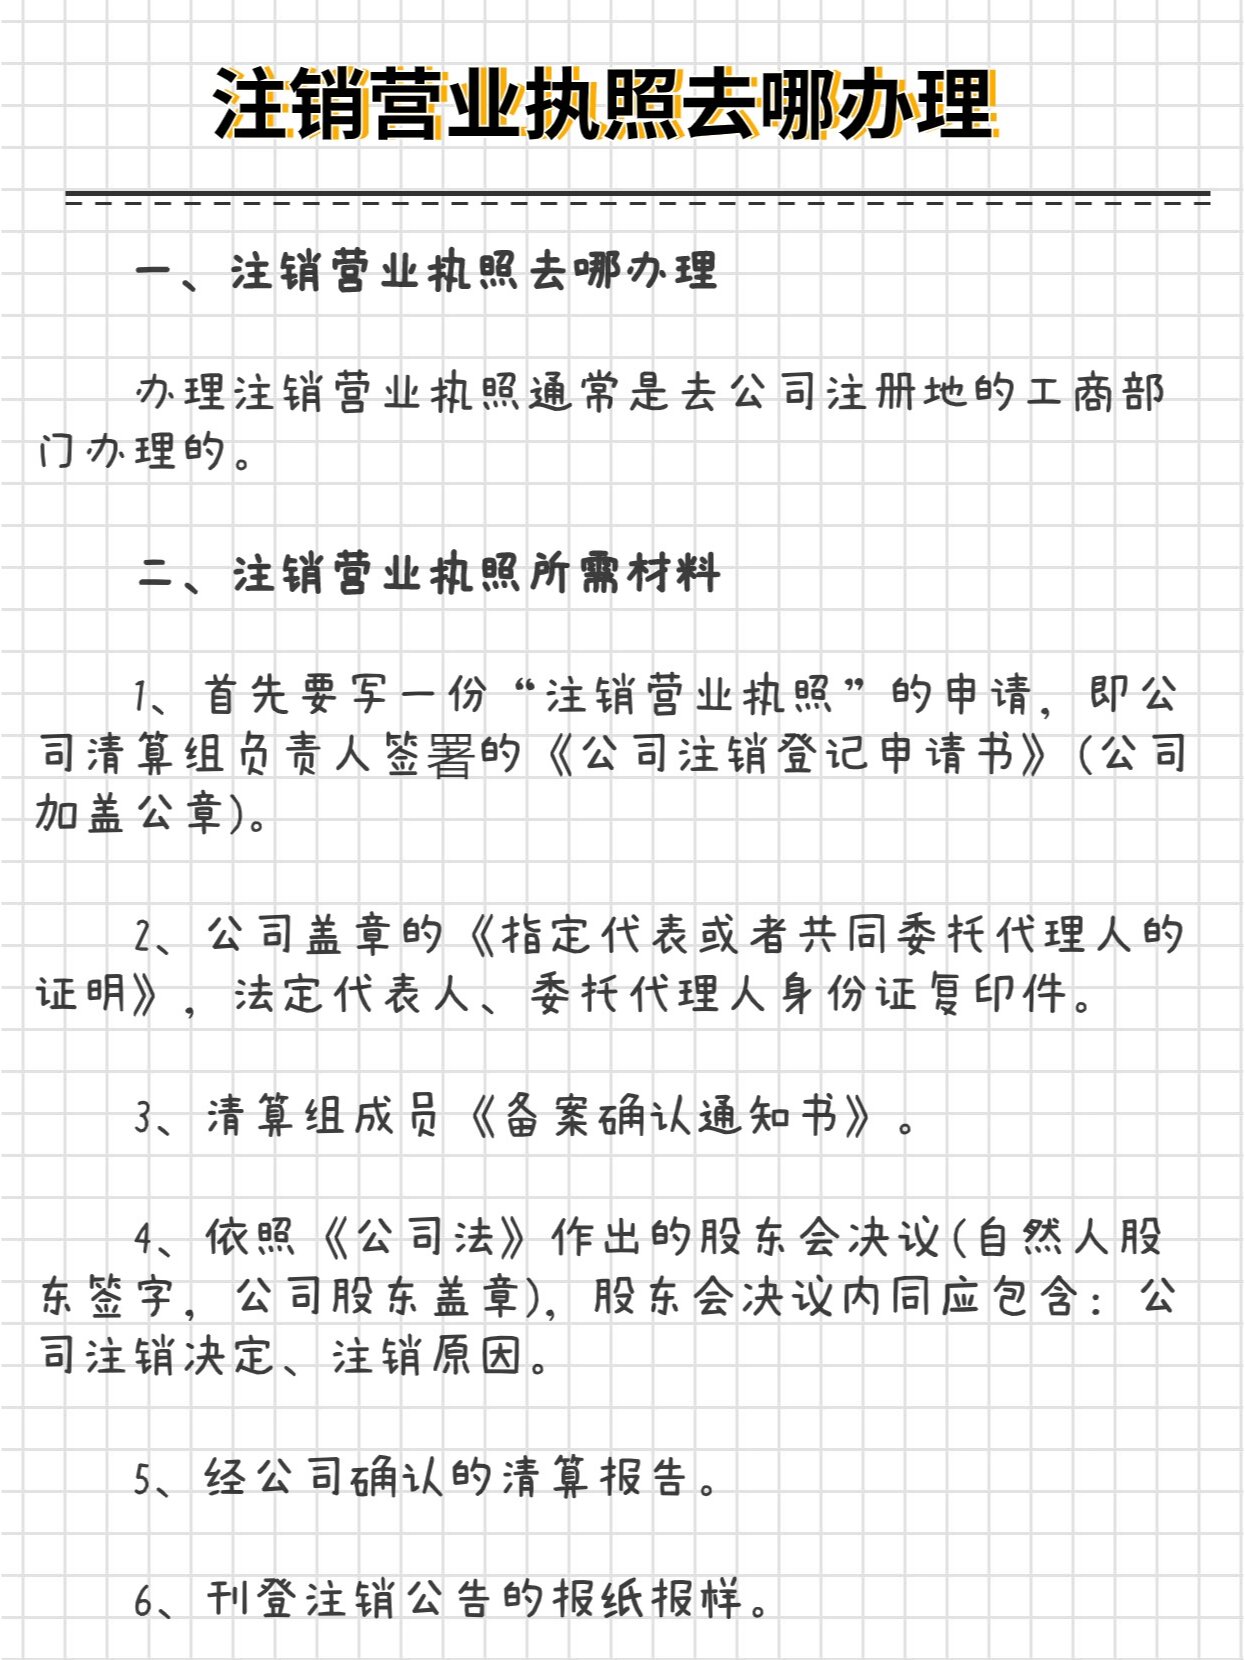 注销营业执照去哪办理
一、注销营业执照去哪办理
办理注销营业执照通常是去公司注册地的工商部
门办理的。
二、注销营业执照所需材料
1、首先要写一份“注销营业执照”的申请，即公
司清算组负责人签署的《公司注销登记申请书》(公司
加盖公章)。
2、公司盖章的《指定代表或者共同委托代理人的
证明》，法定代表人、委托代理人身份证复印件。
3、清算组成员《备案确认通知书》。
4、依照《公司法》作出的股东会决议(自然人股
东签字，公司股东盖章)，股东会决议内同应包含：公
司注销决定、注销原因。
5、经公司确认的清算报告。
6、刊登注销公告的报纸报样。